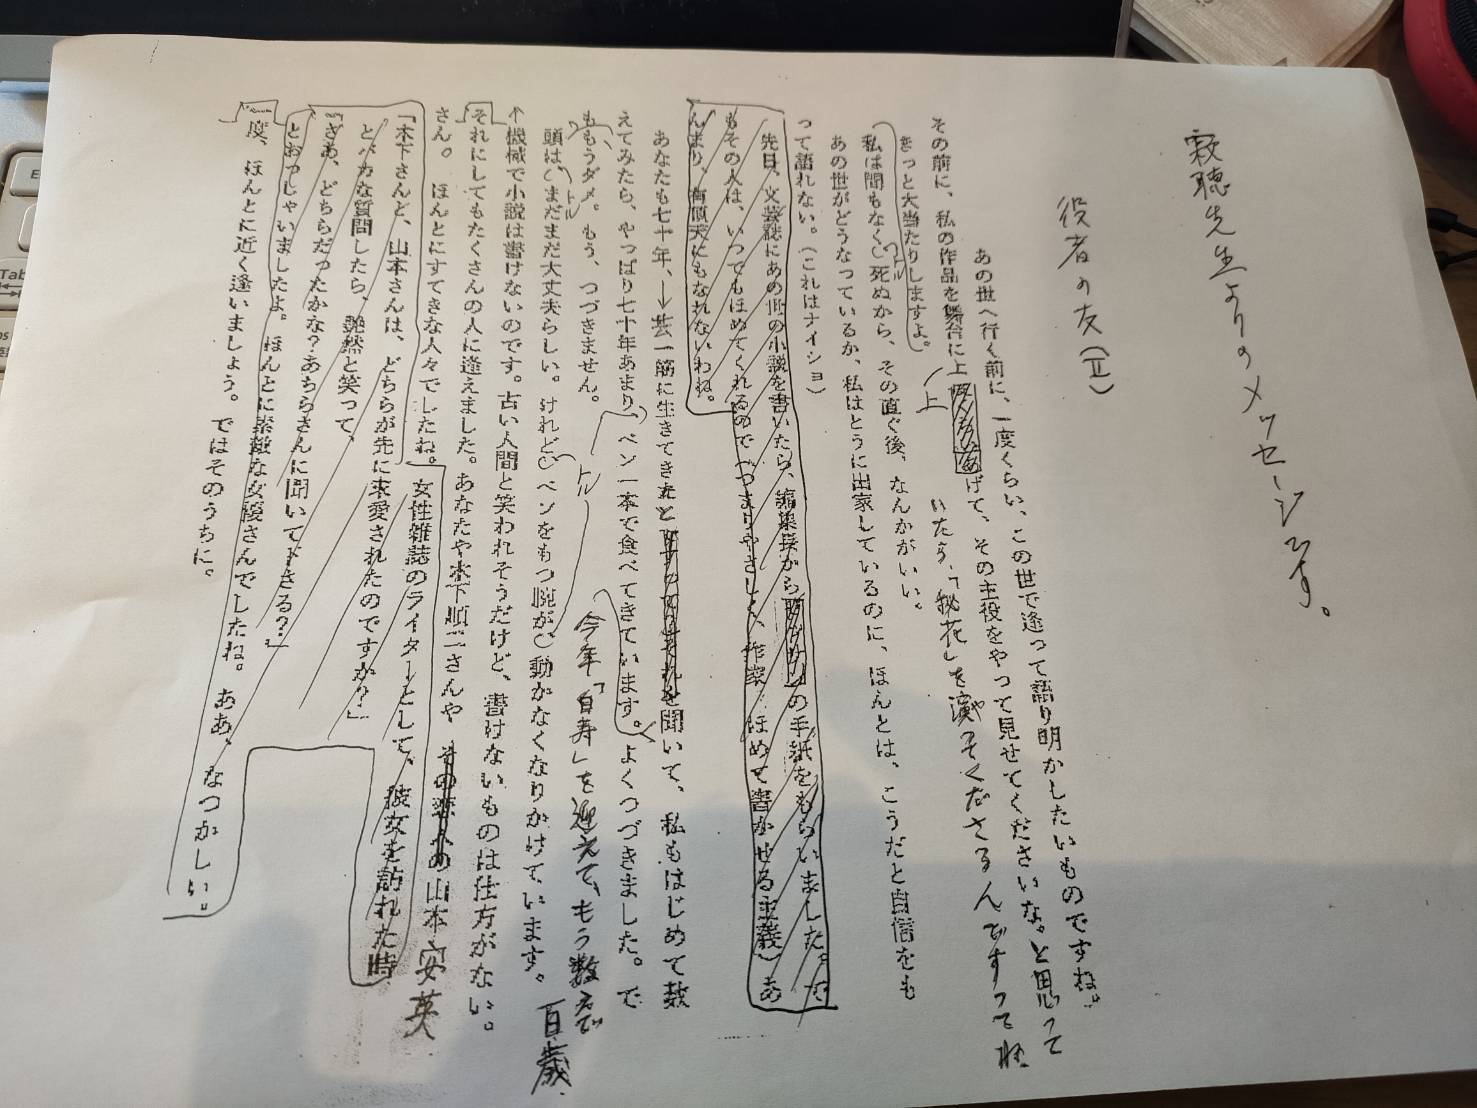 寂聴先生よりのメッセージです。
役者の友(Ⅱ)
あの世へ行く前に、一度くらい、この世で逢って語り明かしたいものですね。
その前に、私の作品を舞台に上げて、その主役をやって見せてくださいな。と思って
上
いたら、「秘花」を演ってくださるんですって
きっと大当たりしますよ。
私は間もなく死ぬから、その直ぐ後、なんかがいい。
トル
あの世がどうなっているか、私はとうに出家しているのに、ほんとは、こうだと自信をも
って語れない。(これはナイショ)
先日、文芸誌にあの世の小説を書いたら、編集長からの手紙をもらいました。で
もその人は、いつでもほめてくれるのでつまりやさしく、作家 ほめて書かせる主義)あ
んまり、有頂天にもなれないわね。
あなたも七十年、芸一筋に生きてきたと を聞いて、私もはじめて数
えてみたら、やっぱり七十年あまり、ペン一本で食べてきています。よくつづきました。で
ももうダメ。もう、つづきません。
今年「白寿」を迎えて、もう数えで
百歳
頭は、まだまだ大丈夫らしい。けれど、ペンをもつ腕が動かなくなりかけています。
トル
トル
機械で小説は書けないのです。古い人間と笑われそうだけど、書けないものは仕方がない。
それにしてもたくさんの人に逢えました。あなたや木下順二さんや
山本安英
さん。ほんとにすてきな人々でしたね。女性雑誌のライターとして、彼女を訪れた時
「木下さんと、山本さんは、どちらが先に求愛されたのですか?」
とバカな質問したら、艶然と笑って、
「さあ、どちらだったかな?あちらさんに聞いて下さる?」
とおっしゃいましたよ。ほんとに素敵な女優さんでしたね。ああ、なつかしい。
一度、ほんとに近く逢いましょう。ではそのうちに。